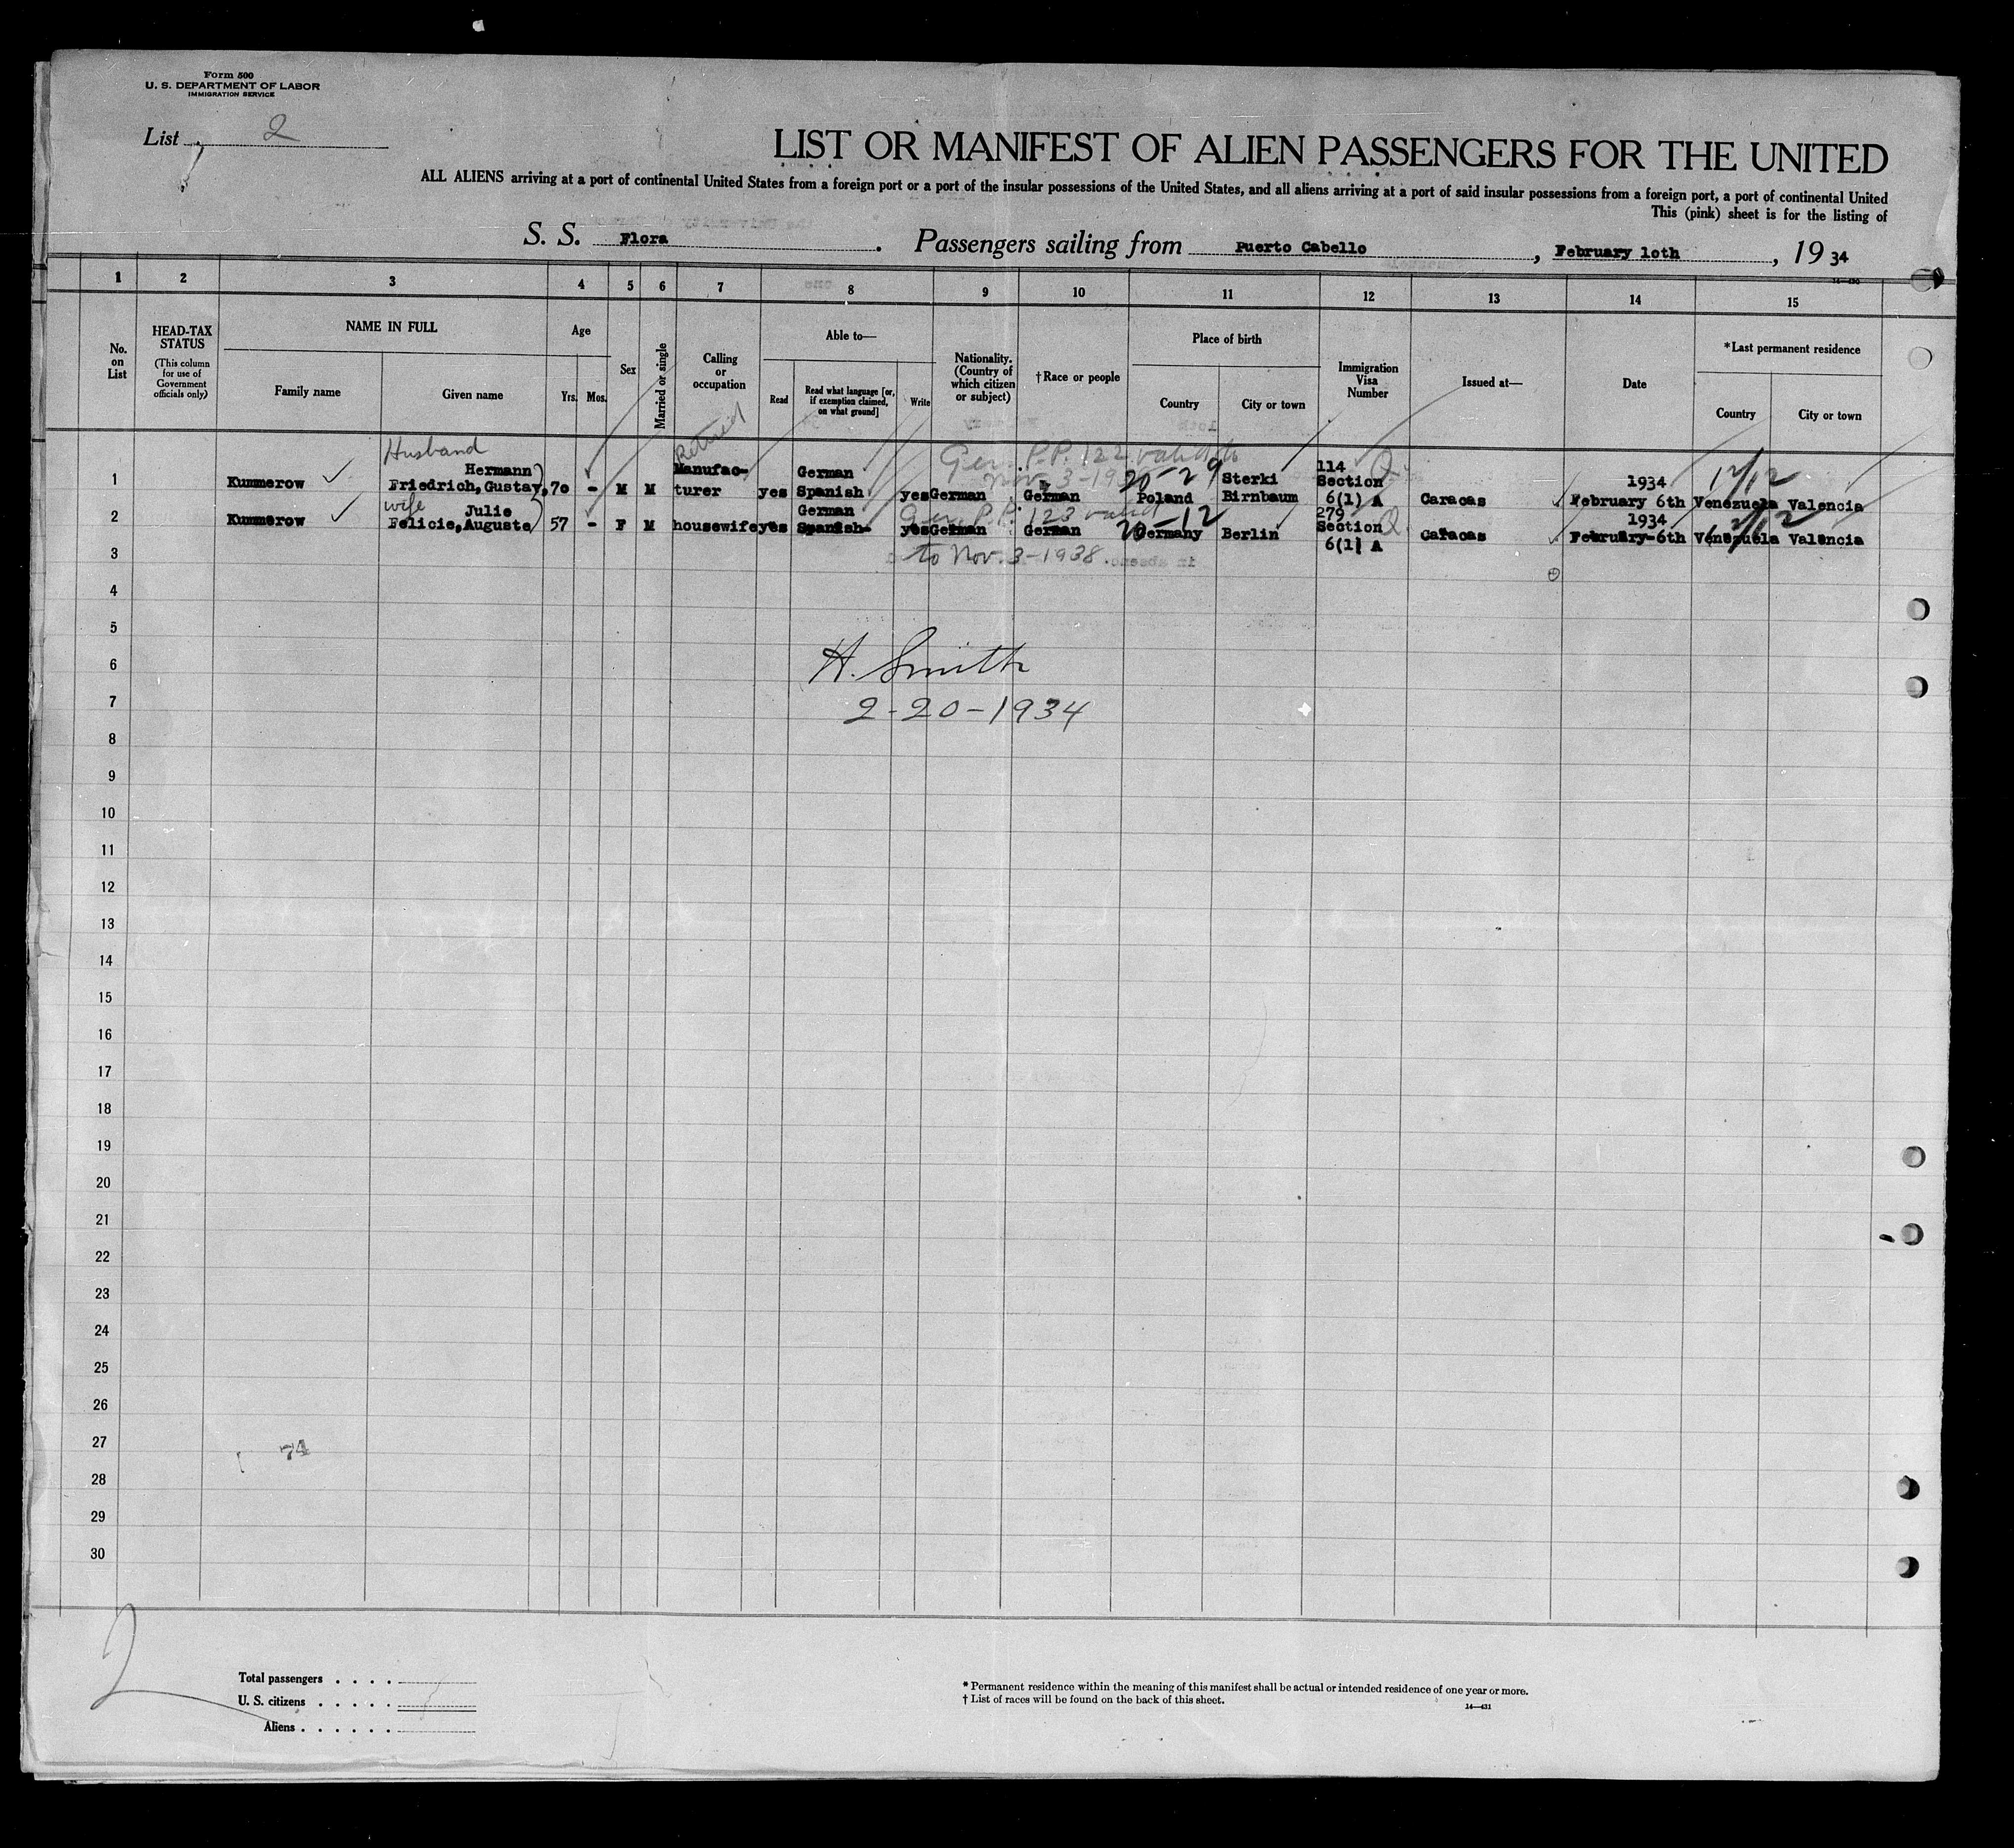 Form 500
U. S. DEPARTMENT OF LABOR
IMMIGRATION SERVICE
List 2
LIST OR MANIFEST OF ALIEN PASSENGERS FOR THE UNITED
ALL ALIENS arriving at a port of continental United States from a foreign port or a port of the insular possessions of the United States, and all aliens arriving at a port of said insular possessions from a foreign port, a port of continental United
This (pink) sheet is for the listing of
S. S. Flora. Passengers sailing from Puerto Cabello, February 1oth, 19 34
14—430
1 2 3 4 5 6 7 8 9 10 11 12 13 14 15
No. on List
HEAD-TAX STATUS
(This column for use of Government officials only)
NAME IN FULL
Family name
Given name
Age
Yrs. Mos.
Sex
Married or single
Calling or occupation
Able to—
Read
Read what language [or, if exemption claimed, on what ground]
Write
Nationality. (Country of which citizen or subject)
†Race or people
Place of birth
Country
City or town
Immigration Visa Number
Issued at—
Date
*Last permanent residence
Country
City or town
Husband
Retired
Ger. P.P. 122 valid to
Nov. 3-19
20-29
12/12
1 Kummerow Hermann Friedrich, Gustav, 7o - M M Manufac-turer yes German Spanish yes German German Poland Sterki Birnbaum 114 Section 6(1) A Caracas 1934 February 6th Venezuela Valencia
wife
Ger. P.P. 123 valid
20-12
2 Kummerow Julie Felicie, Auguste 57 - F M housewife yes German Spanish yes German German Germany Berlin 279 Section 6(1) A Caracas 1934 February-6th Venezuela Valencia
to Nov. 3-1938.
3
4
5
6
H. Smith
7
2-20-1934
8
9
10
11
12
13
14
15
16
17
18
19
20
21
22
23
24
25
26
27
74
28
29
30
2
Total passengers . . . .
U. S. citizens . . . . .
Aliens . . . . . .
* Permanent residence within the meaning of this manifest shall be actual or intended residence of one year or more.
† List of races will be found on the back of this sheet.
14—431